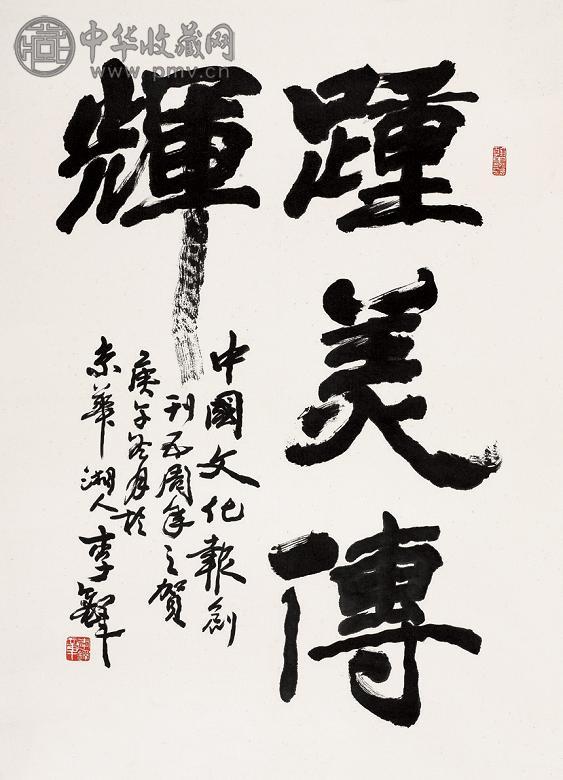 中华收藏网
www.pmv.cn
踵美傳
輝
中國文化報創
刊五周年之賀
庚午冬月於
京華湘人李鐸